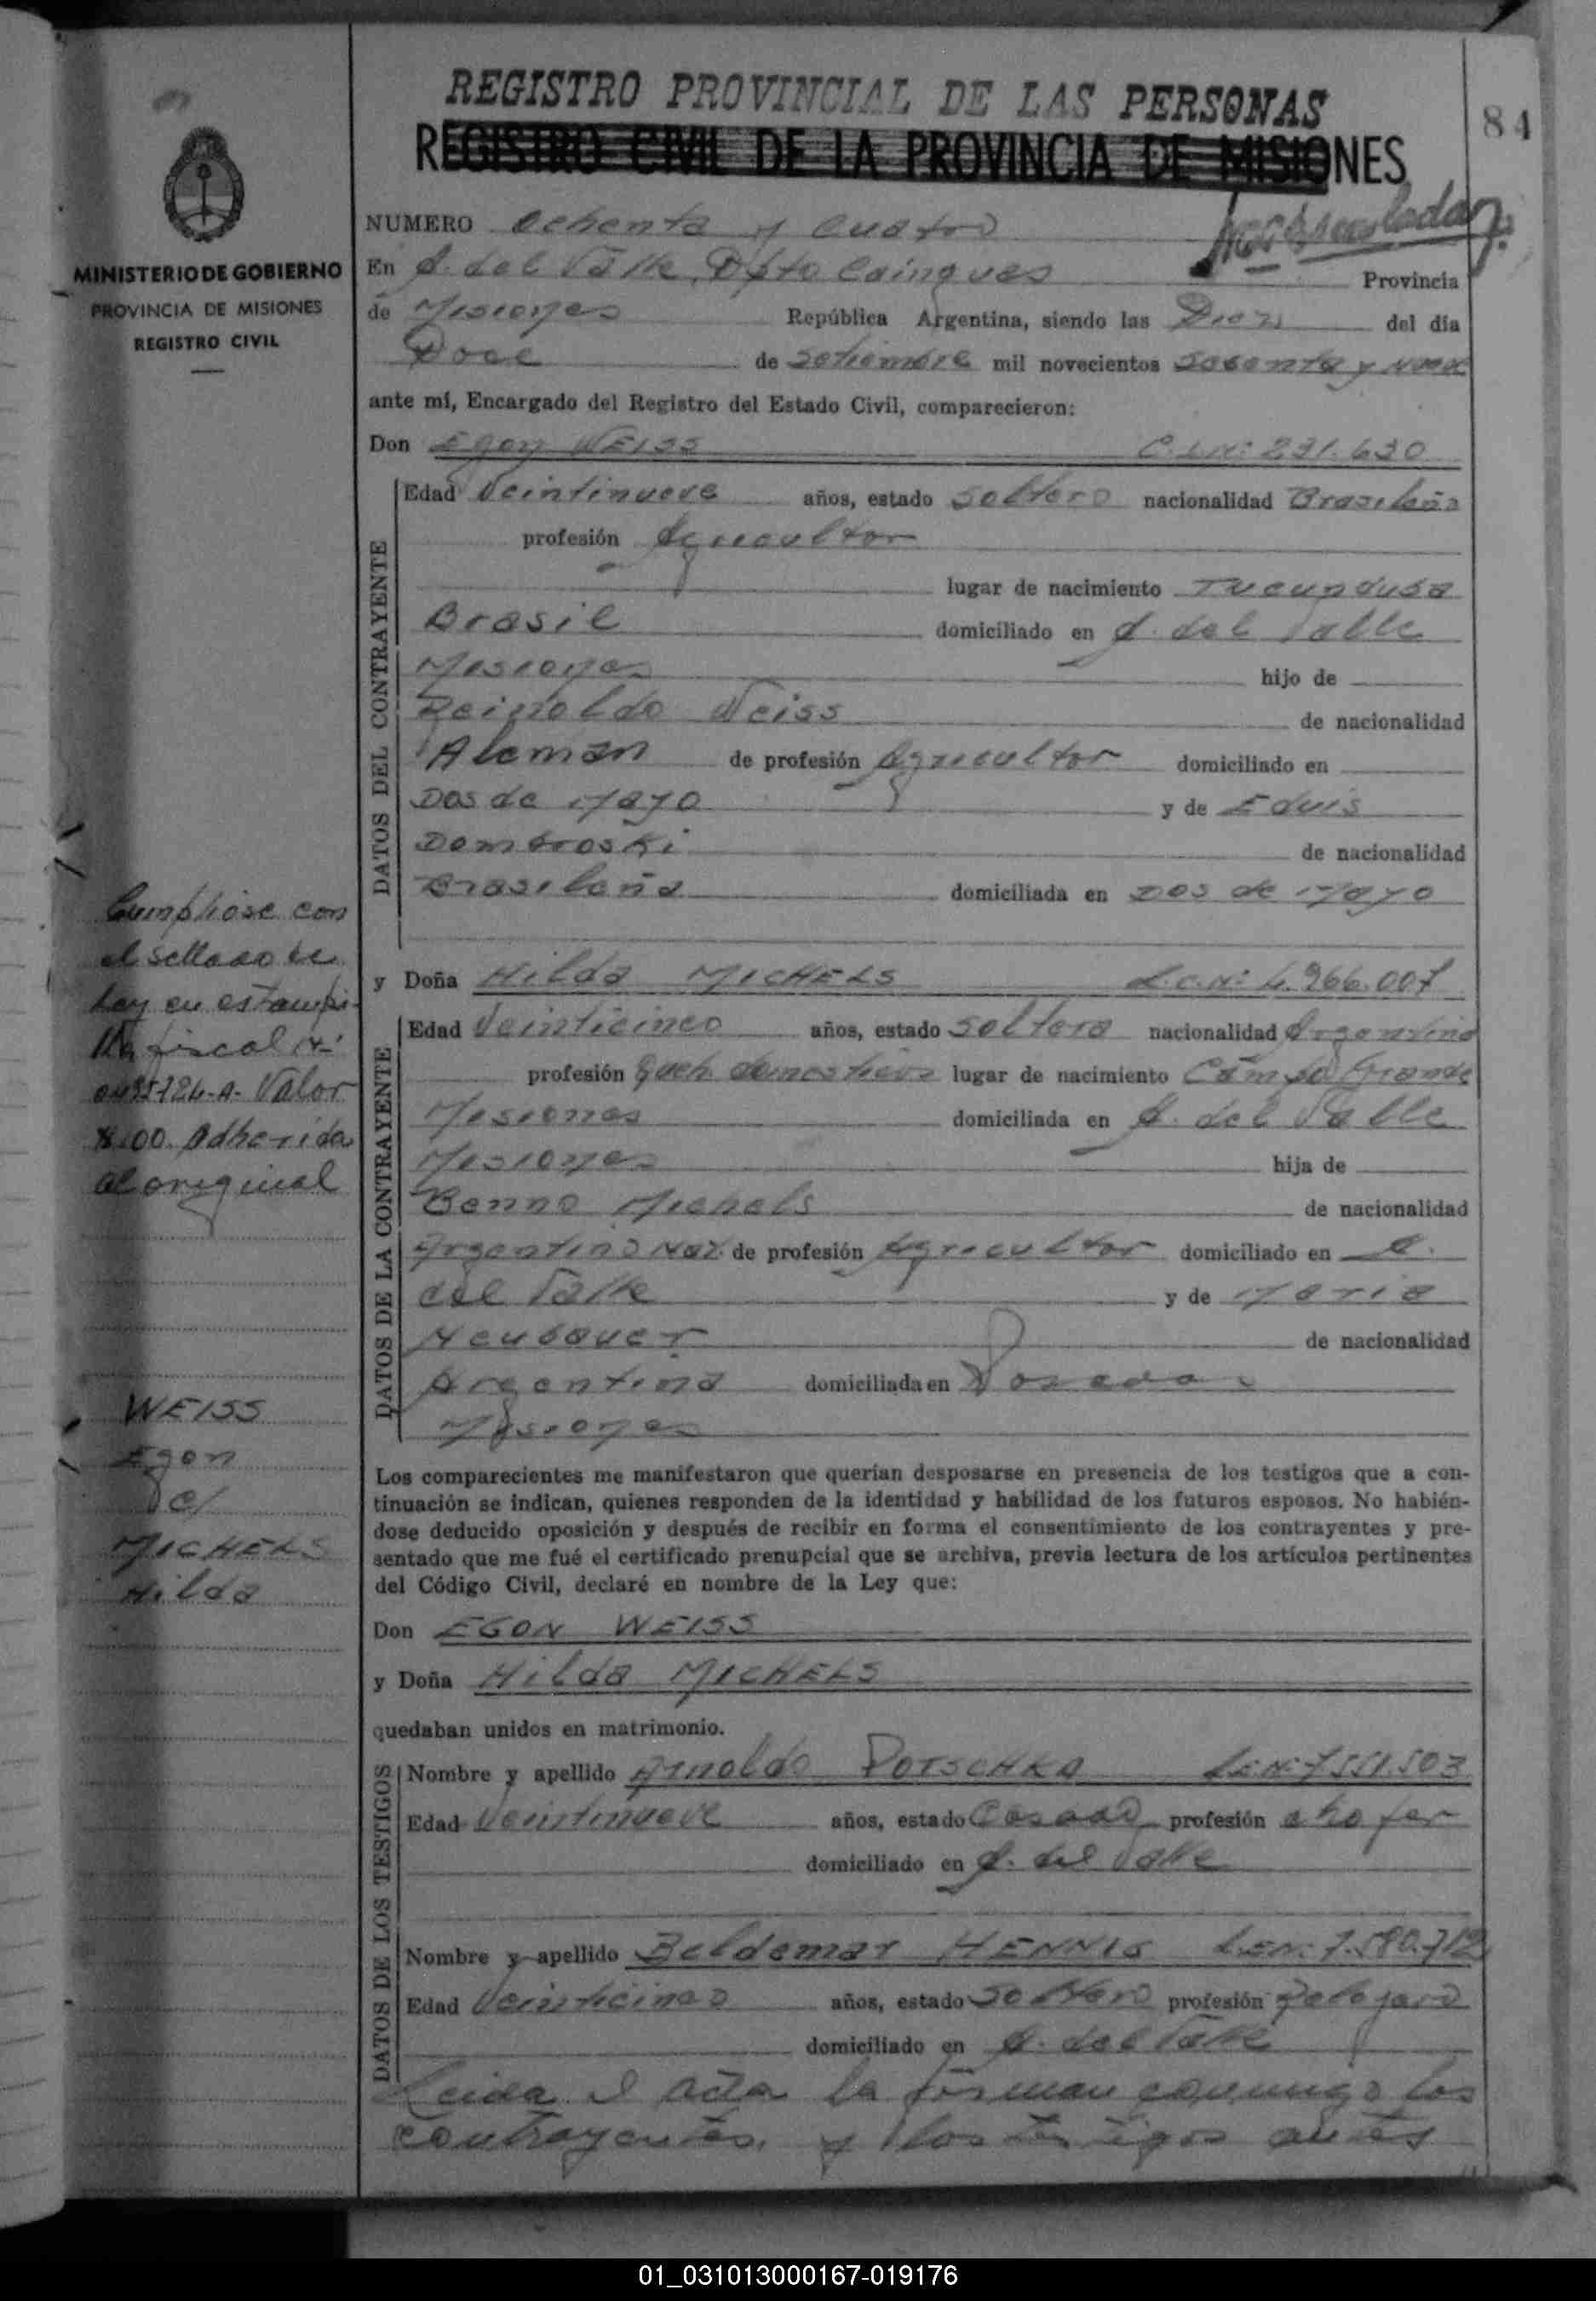 REGISTRO PROVINCIAL DE LAS PERSONAS
REGISTRO CIVIL DE LA PROVINCIA DE MISIONES
84
MINISTERIO DE GOBIERNO
PROVINCIA DE MISIONES
REGISTRO CIVIL
NUMERO Ochenta y Cuatro
En A. del Valle, Dpto Cainguas Provincia
de Misiones República Argentina, siendo las Diez del día
Doce de Setiembre mil novecientos Sesenta y nueve
ante mí, Encargado del Registro del Estado Civil, comparecieron:
Don Egon WEISS C.I.Nº: 231.630
DATOS DEL CONTRAYENTE
Edad Veintinueve años, estado Soltero nacionalidad Brasileña
profesión Agricultor
lugar de nacimiento Tucunduba
Brasil domiciliado en A. del Valle
Misiones hijo de
Reinoldo Weiss de nacionalidad
Aleman de profesión Agricultor domiciliado en
Dos de Mayo y de Eduis
Dombroski de nacionalidad
Brasileña domiciliada en Dos de Mayo
y Doña Hilda MICHELS L.C.Nº: 4.966.007
DATOS DE LA CONTRAYENTE
Edad Veinticinco años, estado Soltera nacionalidad Argentina
profesión Queh. domesticos lugar de nacimiento Campo Grande
Misiones domiciliada en A. del Valle
Misiones hija de
Benno Michels de nacionalidad
Argentino Nat. de profesión Agricultor domiciliado en A.
del Valle y de Maria
Neubauer de nacionalidad
Argentina domiciliada en Posadas
Misiones
Cumpliose con
el sellado de
Ley en estampi-
lla fiscal Nº
0495724-A- Valor
$.00. Adherida
al original
WEISS
Egon
c/
MICHELS
Hilda
Los comparecientes me manifestaron que querían desposarse en presencia de los testigos que a con-
tinuación se indican, quienes responden de la identidad y habilidad de los futuros esposos. No habién-
dose deducido oposición y después de recibir en forma el consentimiento de los contrayentes y pre-
sentado que me fué el certificado prenupcial que se archiva, previa lectura de los artículos pertinentes
del Código Civil, declaré en nombre de la Ley que:
Don EGON WEISS
y Doña Hilda MICHELS
quedaban unidos en matrimonio.
DATOS DE LOS TESTIGOS
Nombre y apellido Arnoldo POTSCHKA L.E.Nº: 7.551.503
Edad Veintinueve años, estado Casado profesión chofer
domiciliado en A. del Valle
Nombre y apellido Beldemar HENNIG L.E.Nº: 7.580.712
Edad Veinticinco años, estado Soltero profesión Relojero
domiciliado en A. del Valle
Leida el acta la firman conmigo los
contrayentes, y los testigos antes
01_031013000167-019176